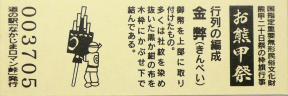 国指定重要無形民俗文化財
熊甲二十日祭の枠旗行事
お熊甲祭
行列の編成
金幣(きんぺい)
御幣を上部に取り
付けたもの。
多くは社紋を染め
抜いた黒か紺の布を
木枠にかぶせ下で
結んである。
道の駅「なかじまロマン峠」発行
003705